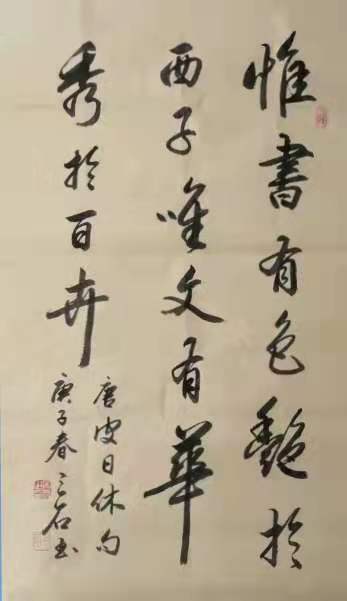 惟書有色艷於
西子唯文有華
秀於百卉
唐皮日休句
庚子春三石书